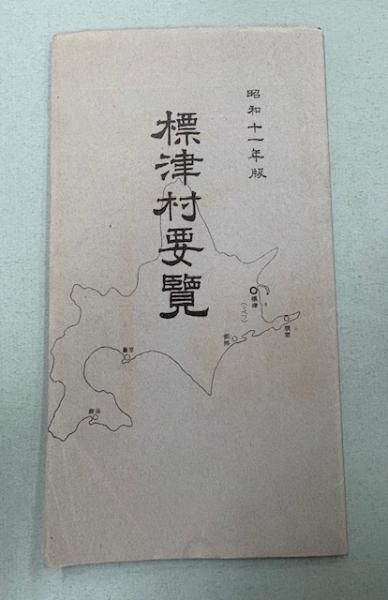 昭和十一年版
標津村要覧
標津
(シベツ)
根室
釧路
室蘭
函館